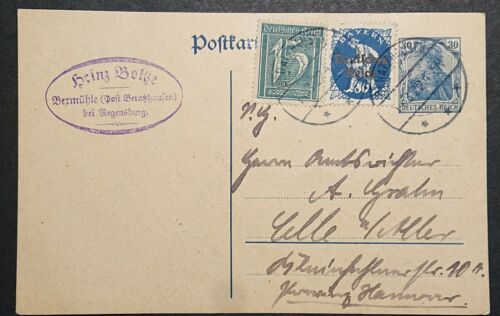 Postkar
Heinz Bolze
Bexmühle (Post Beratzhausen)
bei Regensburg.
Deutsches Reich
15
BAYERN
Deutsches
Reich
80
30
30
DEUTSCHES REICH
Herrn Amtsrichter
A. Grahn
Celle a/Aller
20 II.
Provinz Hannover.